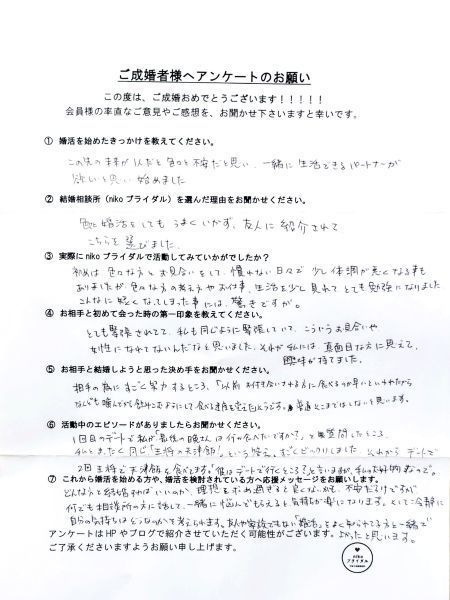 ご成婚者様へアンケートのお願い
この度は、ご成婚おめでとうございます！！！！！
会員様の率直なご意見やご感想を、お聞かせ下さいますと幸いです。
① 婚活を始めたきっかけを教えてください。
この先の未来が1人だと色々と不安だと思い、一緒に生活できるパートナーが
欲しいと思い始めました
② 結婚相談所（nikoブライダル）を選んだ理由をお聞かせください。
色々婚活をしてもうまくいかず、友人に紹介されて
こちらを選びました
③ 実際にnikoブライダルで活動してみていかがでしたか？
初めは色々な方とお見合いをして、慣れない日々で少し体調が悪くなる事も
ありましたが色々な方の考え方やお仕事、生活を少し見れてとても勉強になりました
こんなに軽くなってしまった事には、驚きですが。
④ お相手と初めて会った時の第一印象を教えてください。
とても緊張されてて、私も同じように緊張していて、こういうお見合いや
女性になれてないんだなと思いました。それが私には、真面目な方に見えて、
興味が持てました。
⑤ お相手と結婚しようと思った決め手をお聞かせください。
相手の為にすごく努力するところ、「以前お付き合いする方に食べるのが早いといわれたから
なんども噛んでから飲みこむようにして食べる速度を変えたそうです。普通そこまではしないと思います。
⑥ 活動中のエピソードがありましたらお聞かせください。
1回目のデートで私が「最後の晩さんは何の食べたいですか？」と質問したところ、
私とまったく同じ「王将の天津飯！」という答え。すごくビックリしました。それからデートで
2回王将で天津飯を食べてます。「僕はデートで行くところ？」と言いますが、私の大好物なので。
⑦ これから婚活を始める方や、婚活を検討されている方へ応援メッセージをお願いします。
どんな方と結婚すればいいのか、理想を求め過ぎると良くないかで、不安だらけですが
何でも相談所の方に話して、一緒に悩んでもらえると気持ちが楽になります。そして冷静に
自分の気持ちはどうなのかで考えられます。友人や家族でもない「婚活」をよく知られてる方と一緒で
よかったと思います。
アンケートはHPやブログで紹介させていただく可能性がございます。
ご了承くださいますようお願い申し上げます。
niko
ブライダル